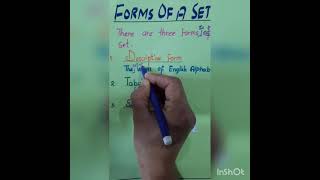 FORMS OF A SET
There are three forms of
set.
1. Descriptive Form
The of English Alphab
2. Tabu
3. S
InShOt